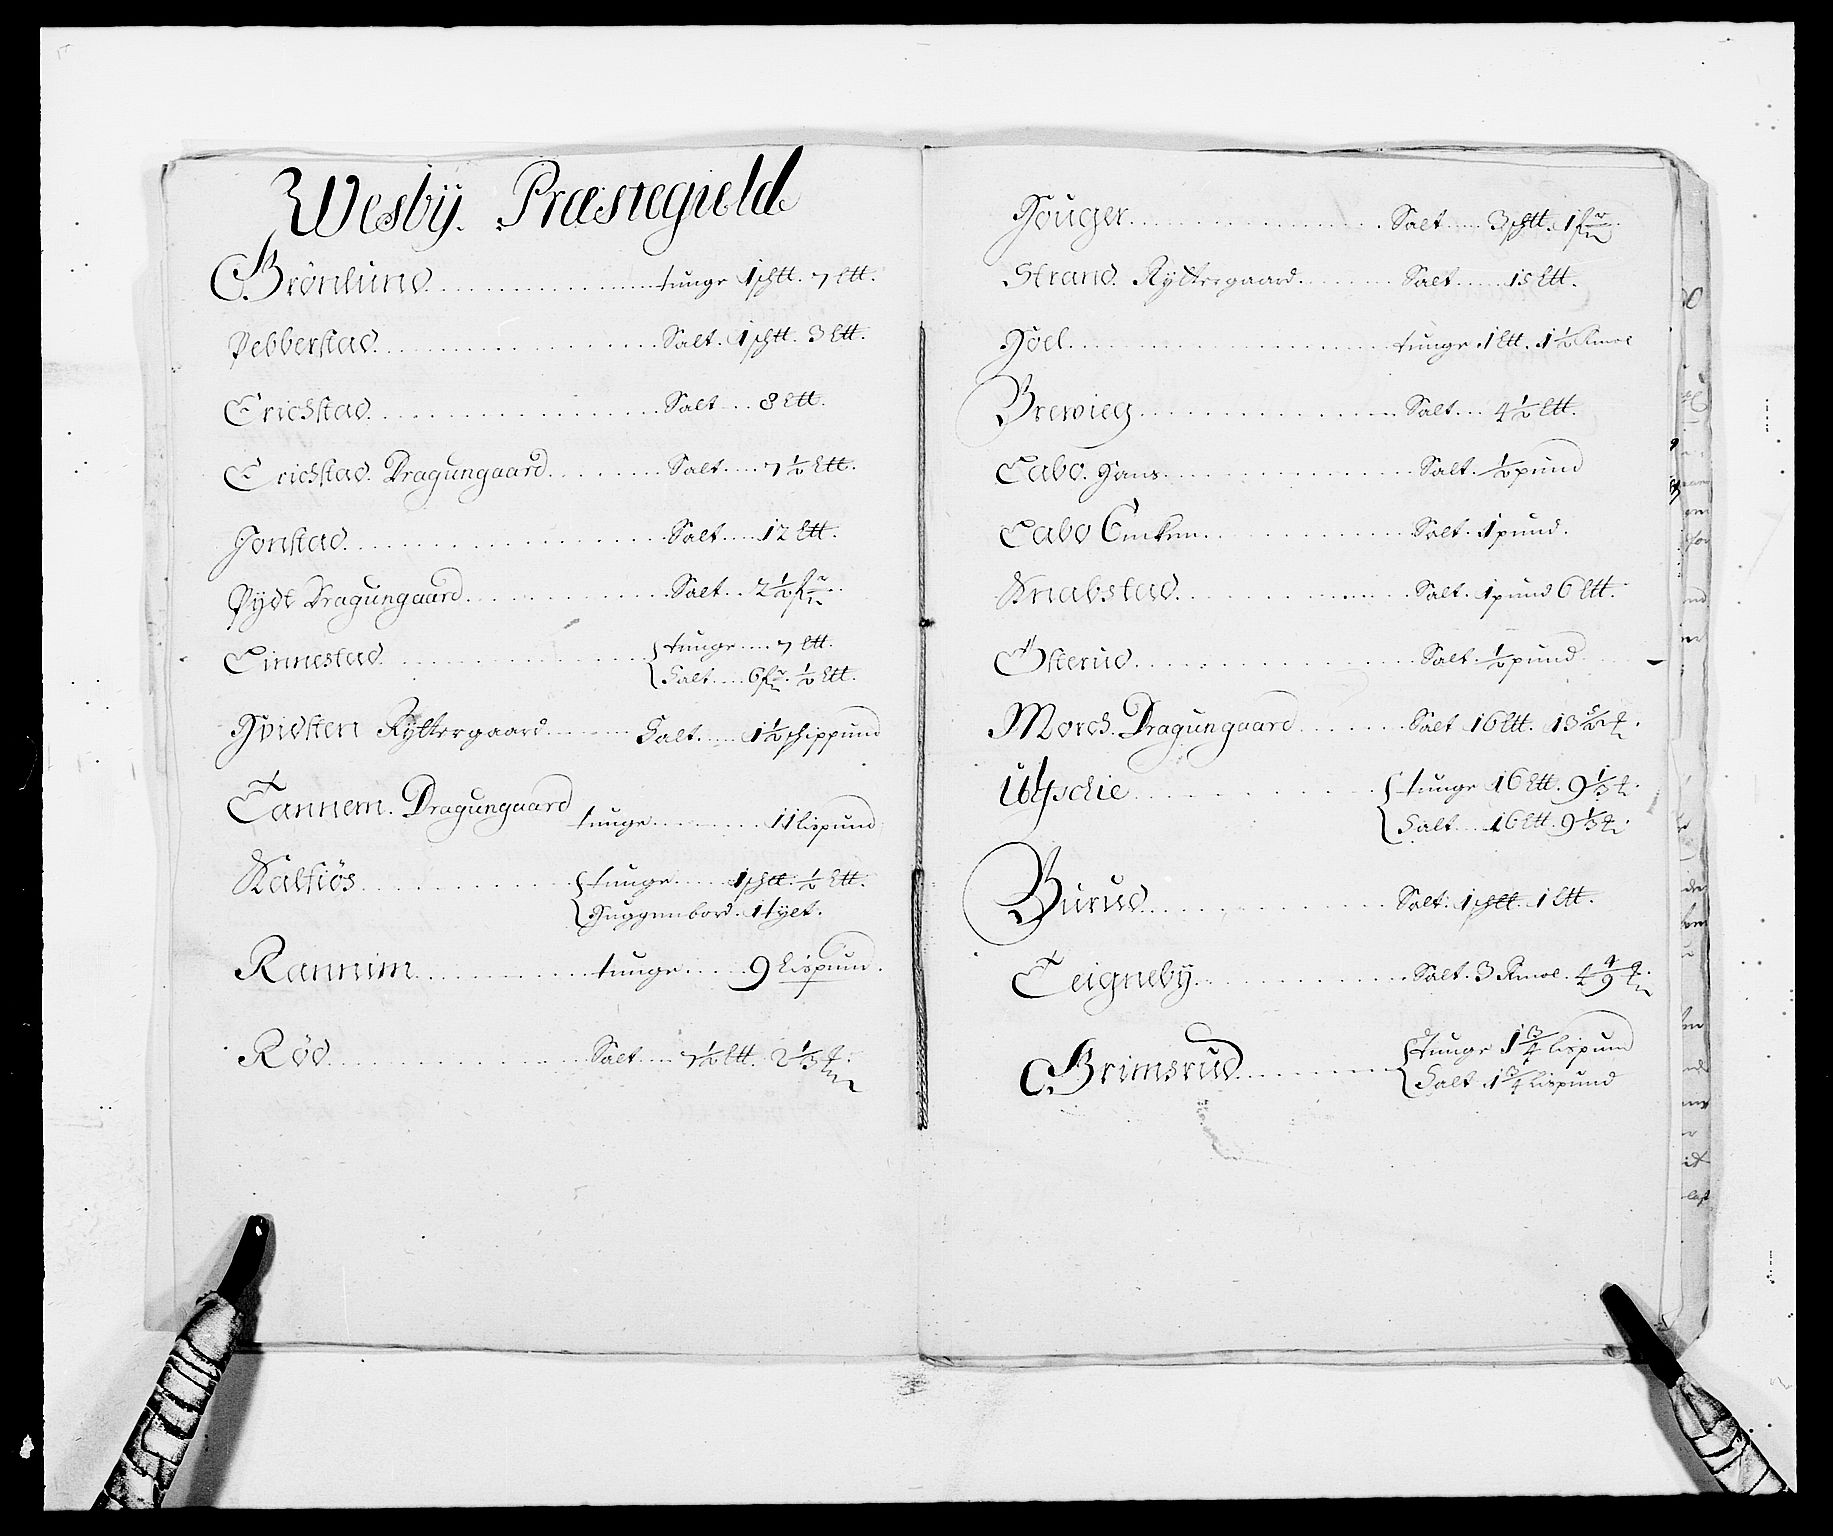 Wesbÿ. Præstegield
Grönlund tunge 1 schtt. 7 Ltt.
Pebberstad Salt. 1 schtt. 3 Ltt.
Erichstad Salt 8 Ltt.
Erichstad Dragungaard Salt 7 ½ Ltt.
Jonstad Salt 12 Ltt.
Pydt Dragungaard Salt 2 ½
Linnestad tunge 7 Ltt.
Salt 6 ½ Ltt.
Hvidsten Ryttergaard Salt 1 ½ schippund
Tannem. Dragungaard tunge 11 lispund
Kalsiös tunge 1 schtt. ½ Ltt.
Huggenbord. 1 tylt.
Rannim tunge 9 Lispund.
Rød Salt 7 ½ Ltt. 2 ⅓
Houger Salt 3 schtt. 1
Strand. Ryttergaard Salt 15 Ltt.
Hoel tunge 1 Ltt. 1 ½ Rmol
Brewieg Salt 4 ½ Ltt.
Labo. Hans Salt ½ pund
Labo Enken Salt 1 pund.
Knabstad Salt 1 pund 6 Ltt.
Österud Salt ½ pund
Morch. Dragungaard Salt 16 Ltt. 13
tunge 16 Ltt. 9 ⅓
Salt 16 Ltt. 9 ⅓
Burud Salt. 1 schtt. 1 Ltt.
Teignebÿ Salt. 3 Rmol. 4 4/9
Grimsrud tunge 1 ¾ lispund
Salt 1 ¾ Lispund